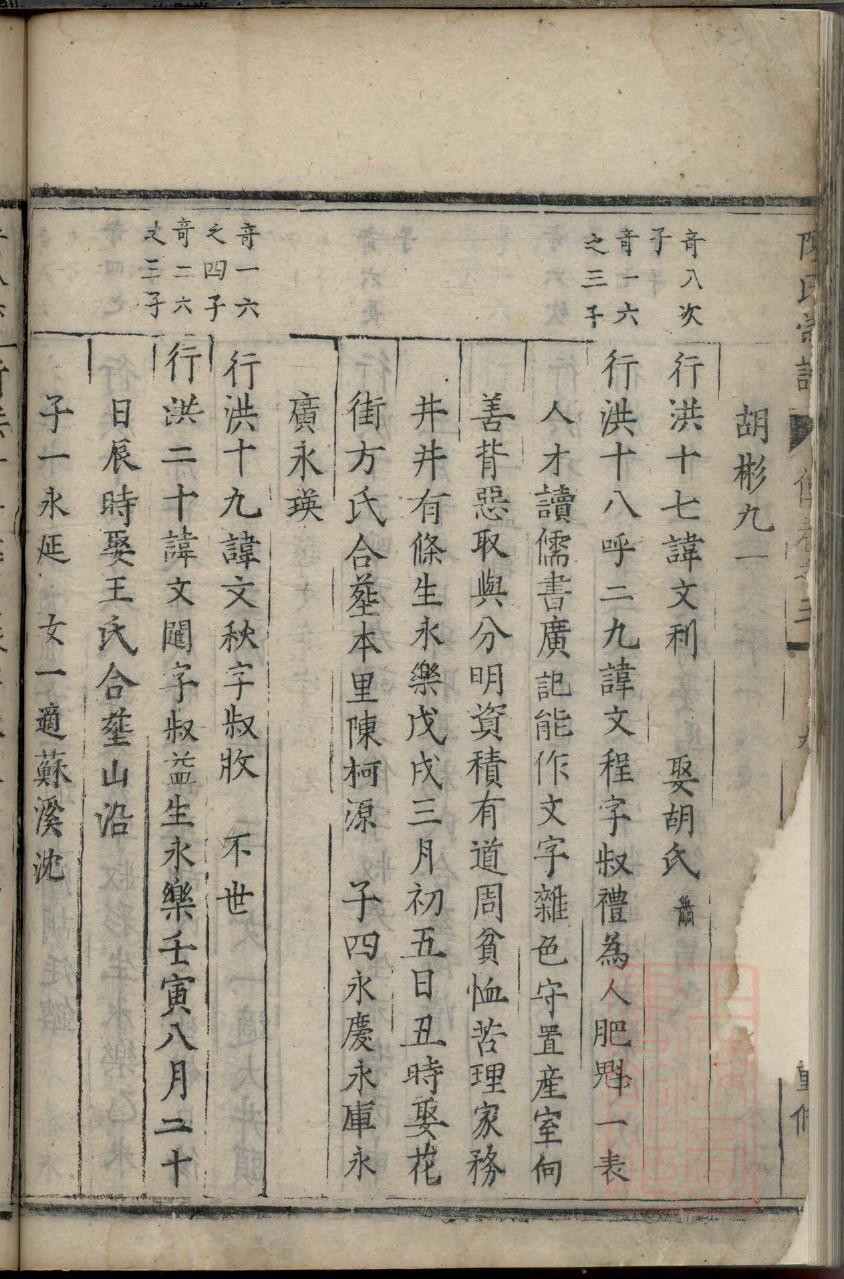 氏宗譜
胡彬九一
奇八次子
行洪十七諱文利 娶胡氏
奇一六之三子
行洪十八呼二九諱文程字叔禮為人肥魁一表
人才讀儒書廣記能作文字雜色守置產室向
善背惡取與分明資積有道周貧恤苦理家務
井井有條生永樂戊戌三月初五日丑時娶花
街方氏合塟本里陳柯源 子四永慶永庫永
廣永瑛
奇一六之四子
行洪十九諱文秋字叔收 不世
奇二六之三子
行洪二十諱文閮字叔益生永樂壬寅八月二十
日辰時娶王氏合塟山沿
子一永延 女一適蘇溪沈